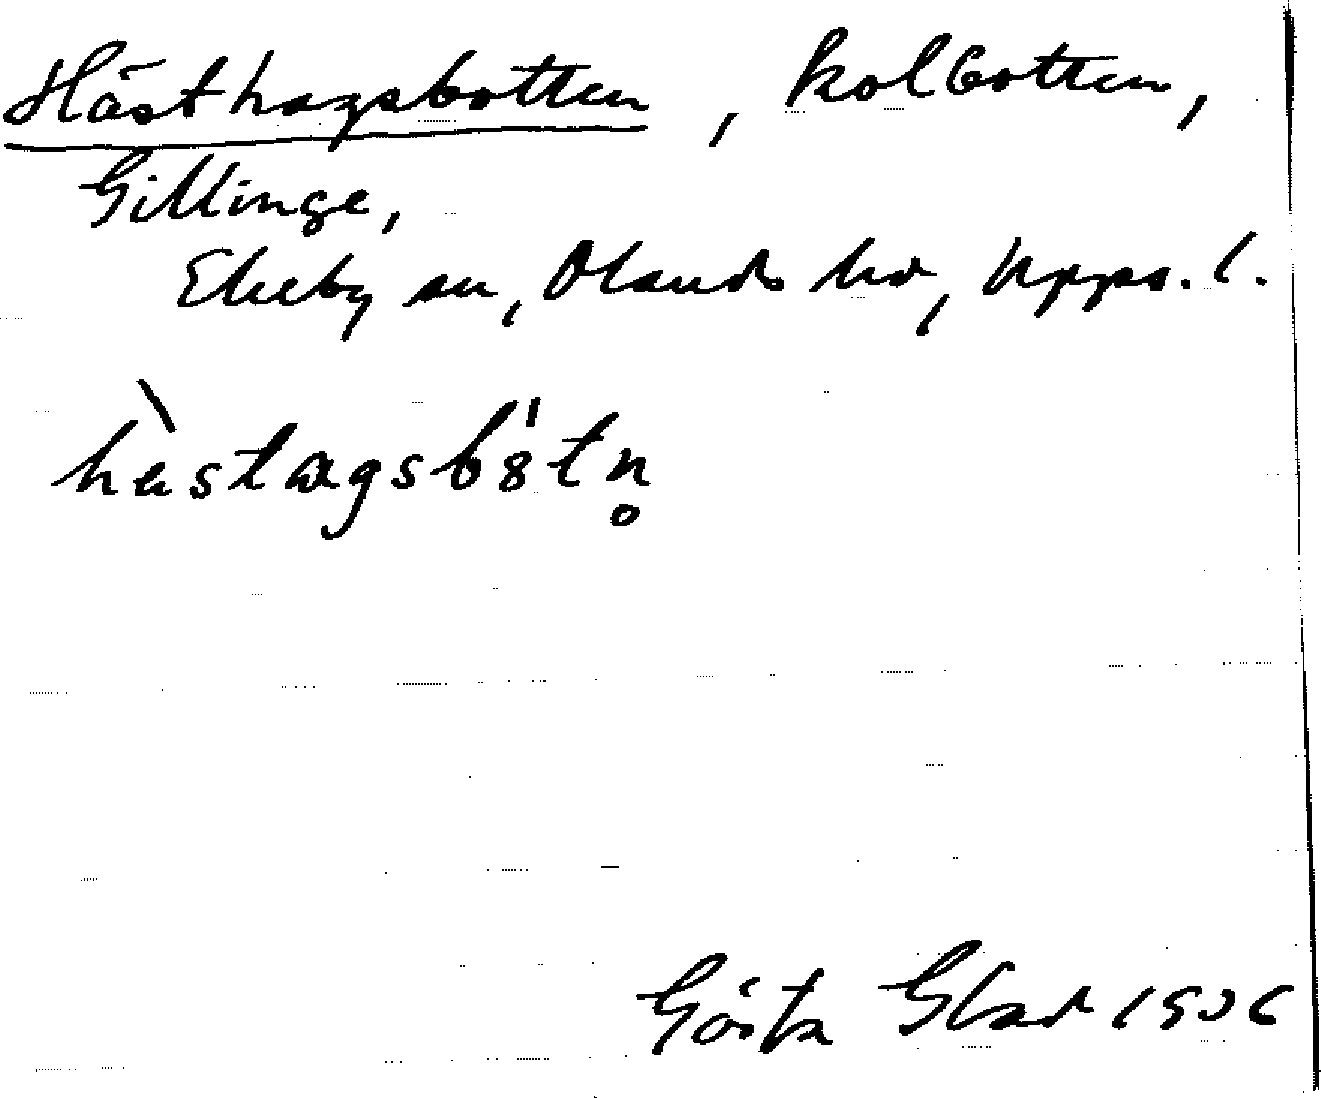 Hästhagsbotten, kolbotten,
Gillinge,
Ekeby sn, Olands hd, Upps. l.
hästagsbȯtn̥
Gösta Glad 1936